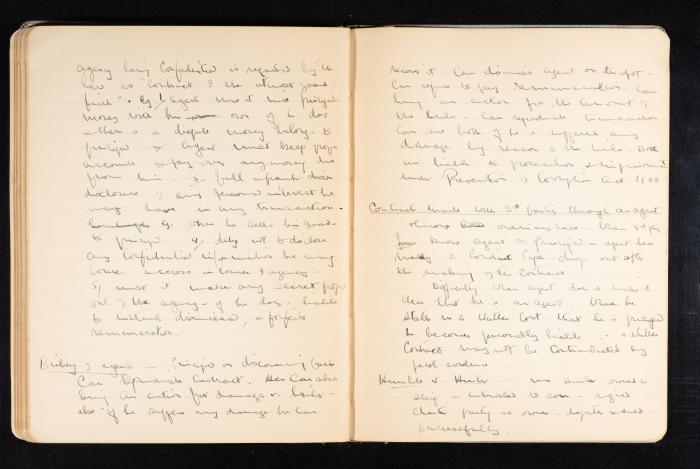 agency being Confidential is regarded by the
law as "Contract of the utmost good
faith". Eg 1/ agent must not mix principal's
money with his own. If he does
& there is a dispute money belongs to
principal. Agent must keep proper
accounts & pay over any money due
from him. full
disclosure of any personal interest he
may have in any transaction -
eg. when he sells his goods
to principal. 4/ duty not to disclose
any Confidential information he may
come across in course of agency.
5/ must not make any secret profit
out of the agency - if he does liable
to instant dismissal, & forfeits
remuneration.
Bribery of agents - Principal on discovering bribe
Can repudiate Contract. He Can also
bring an action for damages
also if he suffers any damage he can
recover it. Can dismiss agent on the spot.
Can refuse to pay remuneration. Can
bring an action for the amount of
the bribe. Can repudiate transaction.
Can sue both if he suffers any
damage by reason of the bribe. Both
are liable to prosecution & imprisonment
under Prevention of Corruption Act 1906.
Contract made with 3rd parties through an agent
ordinary case - when 3rd pty
knows agent & Principal - agent
is a Conduit Pipe - drops out after
the making of the Contract.
Difficulty when agent does not make it
clear that he is an agent. Where he
states in a written Cont. that he is principal
he becomes personally liable - a written
Contract may not be Contradicted by
parol evidence
Humble v. Hunter - Mrs Hunter owned a
ship - intrusted to son - signed
charter party as owner -
successfully.